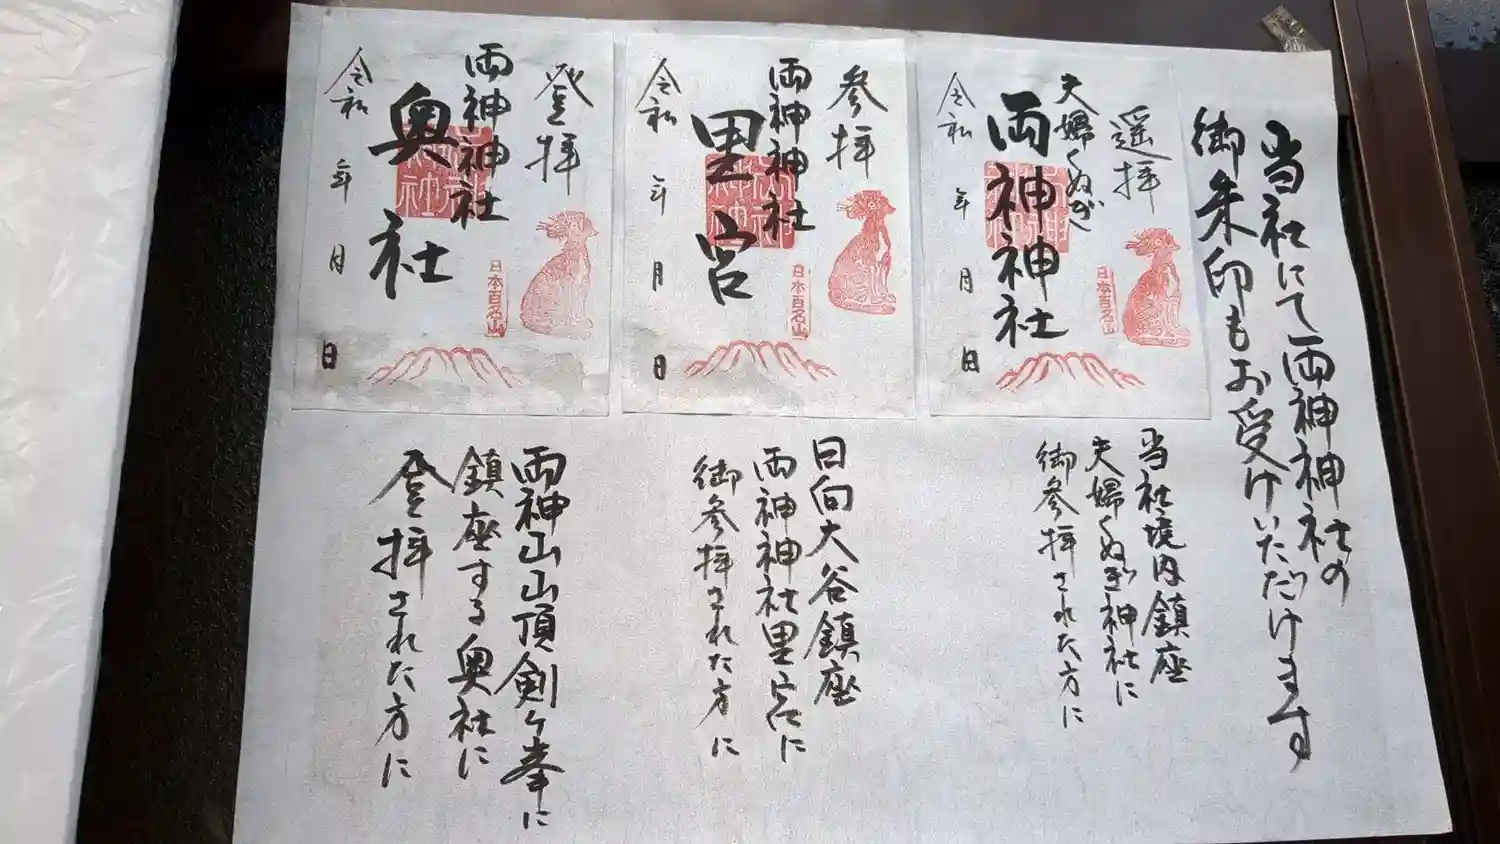 当社にて両神神社の
御朱印もお受けいただけます
遥拝
夫婦くぬぎ
両神神社
日本百名山
令和 年 月 日
当社境内鎮座
夫婦くぬぎ神社に
御参拝された方に
参拝
両神神社
里宮
日本百名山
令和 年 月 日
日向大谷鎮座
両神神社里宮に
御参拝された方に
登拝
両神神社
奥社
日本百名山
令和 年 月 日
両神山山頂剣ヶ峯に
鎮座する奥社に
登拝された方に